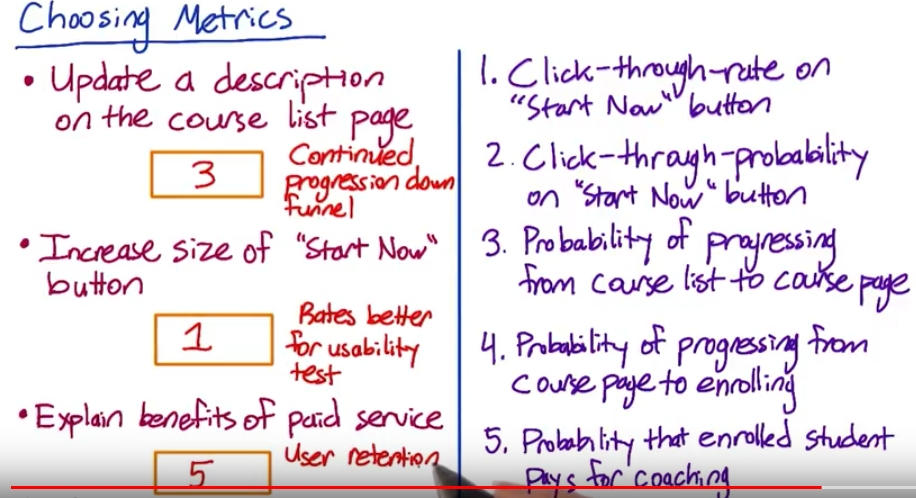 Choosing Metrics
• Update a description
on the course list page
3
Continued
progression down
funnel
• Increase size of "Start Now"
button
1
Rates better
for usability
test
• Explain benefits of paid service
5
User retention
1. Click-through-rate on
"Start Now" button
2. Click-through-probability
on "Start Now" button
3. Probability of progressing
from course list to course page
4. Probability of progressing from
course page to enrolling
5. Probability that enrolled student
pays for coaching